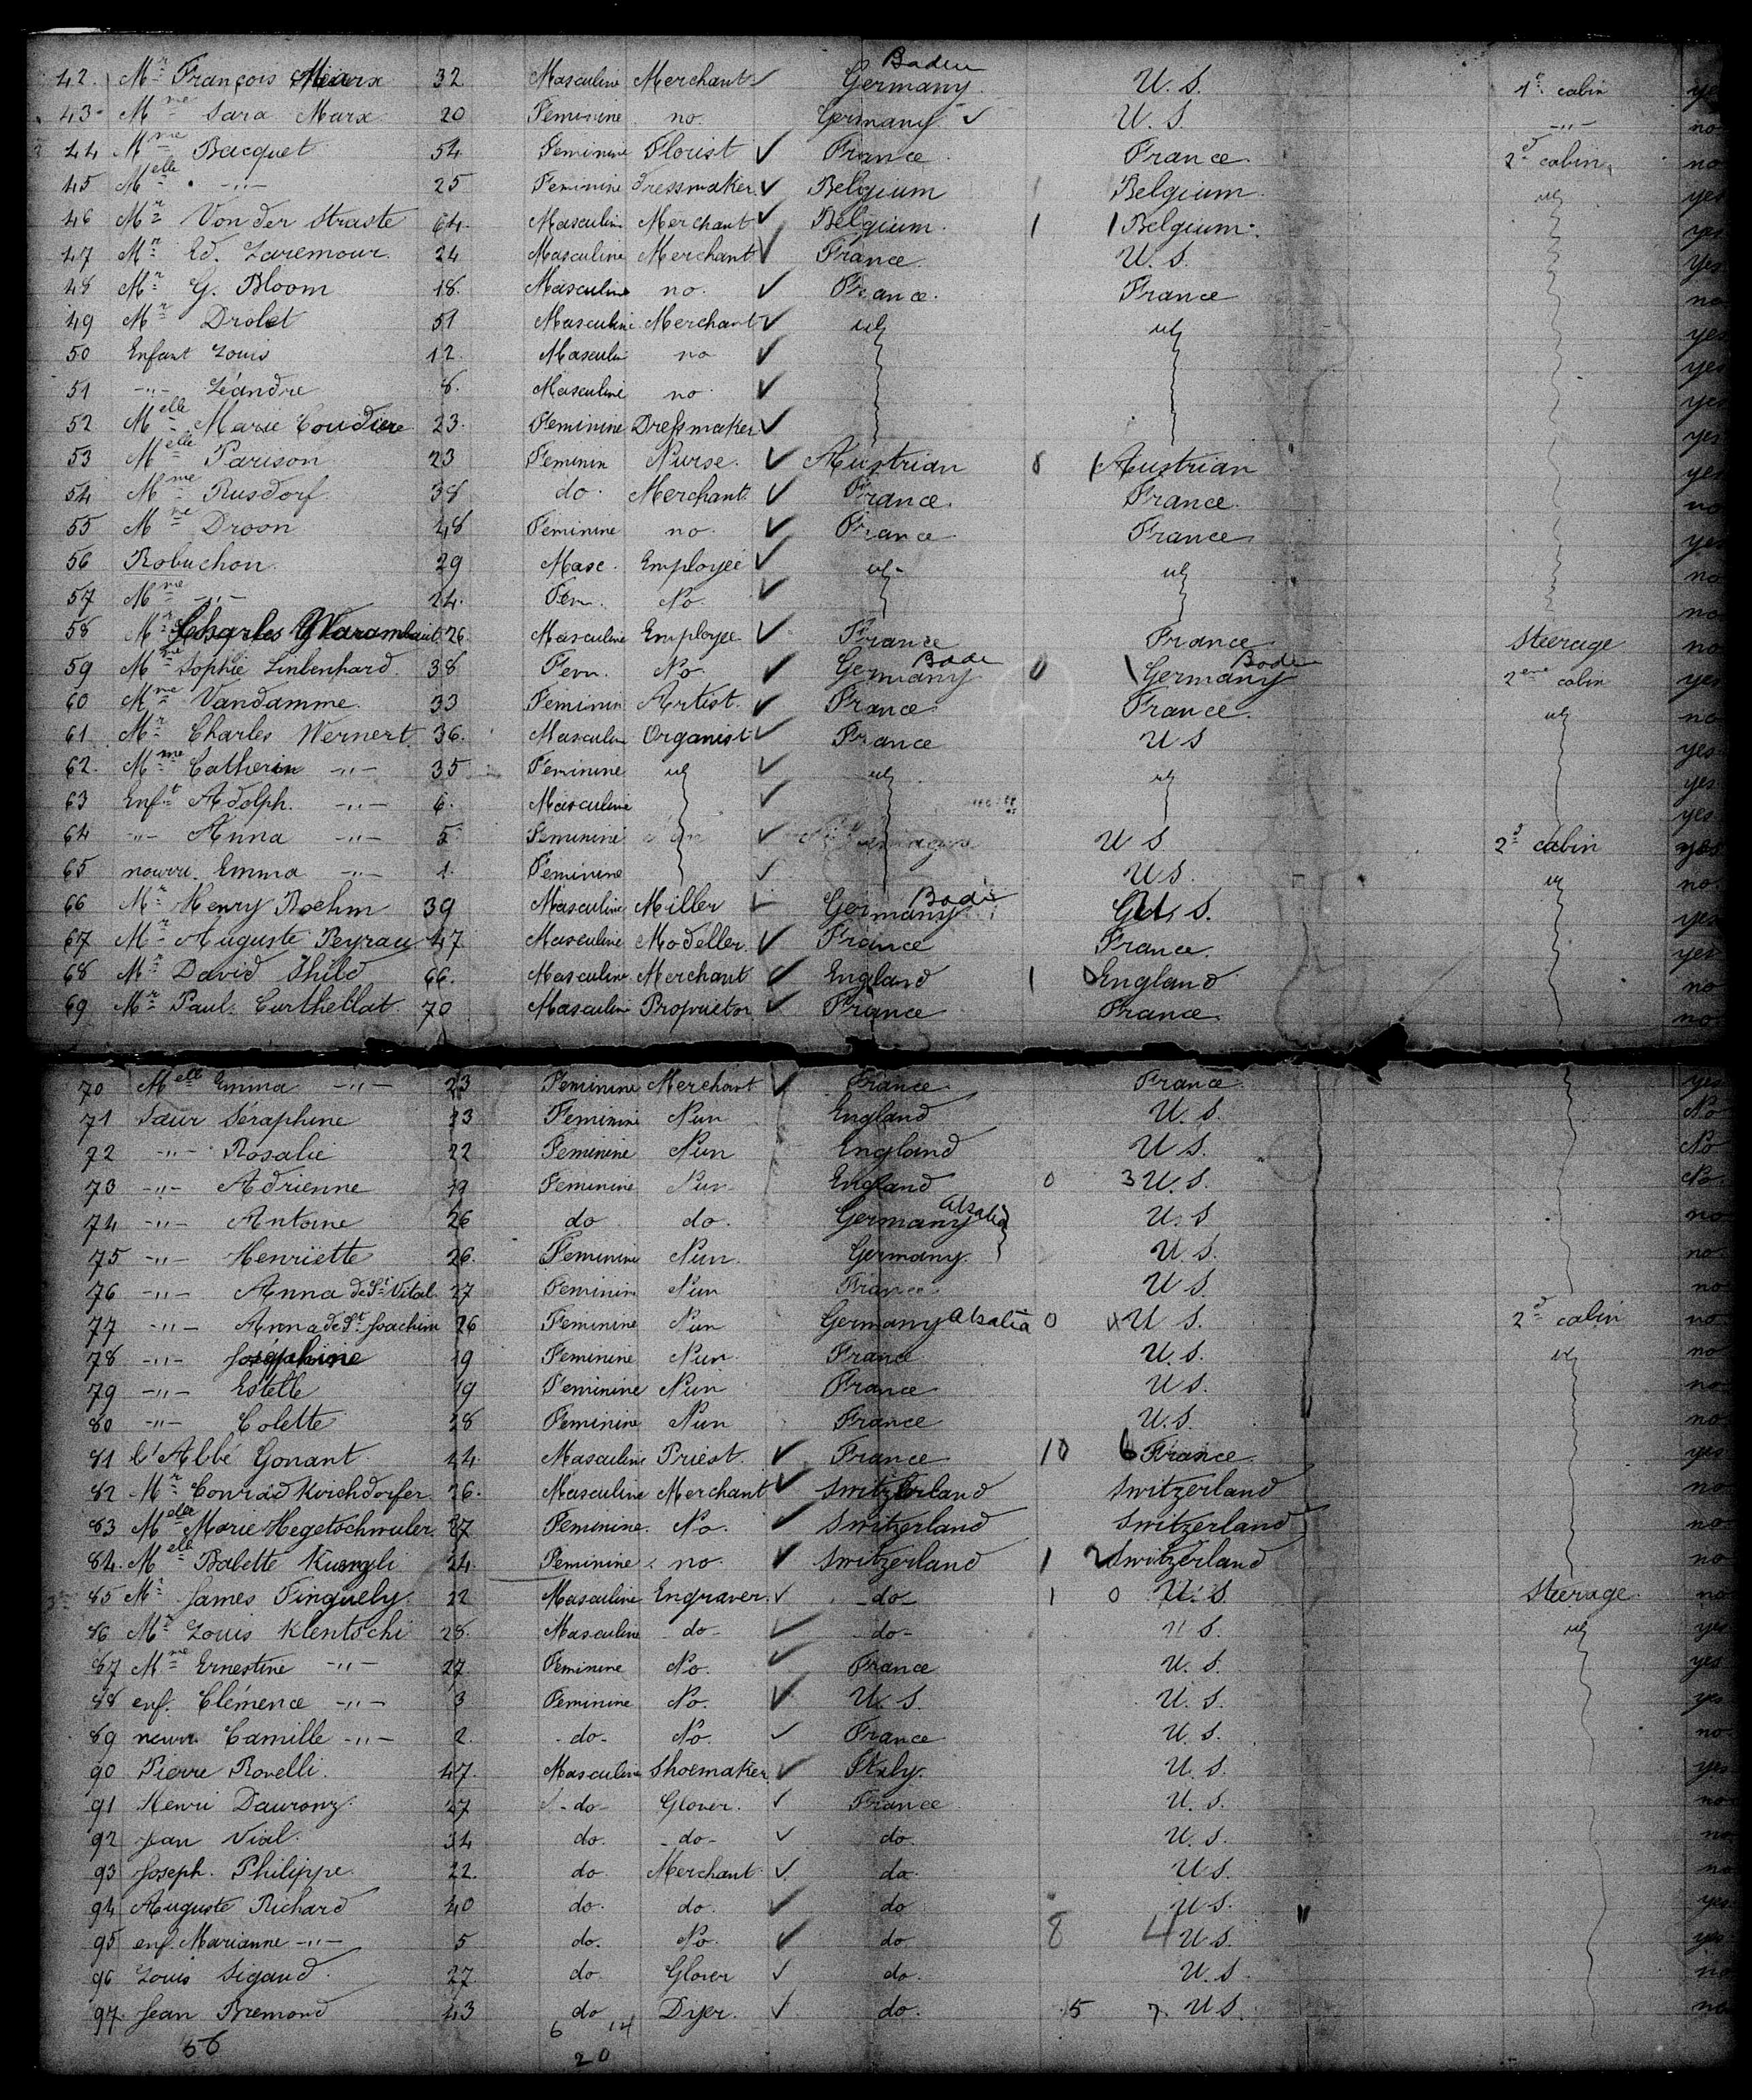 42. Mr François Marx 32 Masculine Merchant ✓ Germany Baden U. S. 1e cabin
43 Mme Sara Marx 20 Feminine no. Germany ✓ U. S. -"- no
44 Mme Bacquet 54 Feminine Florist ✓ France France 2d cabin no
45 Melle -"- 25 Feminine Dressmaker ✓ Belgium Belgium yes
46 Mr Von der Straste 64. Masculine Merchant ✓ Belgium 1 1 Belgium yes
47 Mr Ed. Laremour 24 Masculine Merchant ✓ France U. S. yes
48 Mr G. Bloom 18. Masculine no. ✓ France. France no
49 Mr Drolet 51 Masculine Merchant ✓ yes
50 Enfant Louis 12 Masculin no ✓ yes
51 -"- Léandre 8. Masculine no ✓ yes
52 Melle Marie Coudière 23. Feminine Dressmaker ✓ yes
53 Melle Parison 23 Feminin Nurse. ✓ Austrian Austrian yes
54 Mme Rusdorf 38 do. Merchant ✓ France. France. no
55 Mme Droon 48 Feminine no. ✓ France France yes
56 Robuchon 29 Masc. Employee ✓ no
57 Mme -"- 24. Fem. No. ✓ no
58 Mr Charles Warambault 26. Masculine Employee ✓ France France Steerage no
59 Mme Sophie Linlenhard. 38 Fem. No ✓ Germany Bade 0 Germany Baden 2eme cabin yes
60 Mme Vandamme. 33 Feminin Artist. ✓ France France. no
61 Mr Charles Wernert 36. Masculin Organist ✓ France U S yes
62. Mme Catherin -"- 35 Feminine ✓ yes
63 Enft Adolph. -"- 6. Masculine ✓ yes
64 -"- Anna -"- 5 Feminine ✓ U S. 2d cabin yes
65 nourri. Emma -"- 1. Feminine ✓ U S. no
66 Mr Henry Boehm 39 Masculine Miller Germany Bade U. S. yes
67 Mr Auguste Peyrau 47 Masculine Modeller ✓ France France. yes
68 Mr David Shild 66. Masculine Merchant ✓ England 1 England no
69 Mr Paul Curthellat 70 Masculine Proprietor ✓ France France no
70 Melle Emma -"- 23 Feminine Merchant ✓ France France yes
71 Sœur Séraphine 23 Feminine Nun England U. S. No
72 -"- Rosalie 22 Feminine Nun England U S. No
73 -"- Adrienne 19 Feminine Nun England 0 3 U. S. No
74 -"- Antoine 26 do do. Germany Alsatia U. S no
75 -"- Henriette 26. Feminine Nun Germany. U S. no
76 -"- Anna de St Vital 27 Feminin Nun France U S. no
77 -"- Anna de St Joachim 26 Feminine Nun Germany Alsatia 0 U S. 2d cabin no
78 -"- Joséphine 19 Feminine Nun France U. S. no
79 -"- Estelle 19 Feminine Nun France U S. no
80 -"- Colette 28 Feminine Nun France U. S. no
81 l'Abbé Gonant 44. Masculine Priest. ✓ France 10 6 France yes
82 Mr Conrad Kirchdorfer 26. Masculine Merchant ✓ Switzerland Switzerland no
83 Melle Marie Hegetschwuler 37 Feminine. No. ✓ Switzerland Switzerland no
84. Melle Babette Kungli 24. Feminine no. ✓ Switzerland 1 2 Switzerland no
85 Mr James Tinguely 22 Masculine Engraver. ✓ -do- 1 0 U. S Steerage no
86 Mr Louis Klentschi 28. Masculine do- ✓ do- U S. yes
87 Mme Ernestine -"- 27 Feminine No. ✓ France U. S. yes
88 enf. Clémence -"- 3 Feminine No. ✓ U. S. U. S. yes
89 nourr. Camille -"- 2. -do- No. ✓ France U. S. no
90 Pierre Rovelli. 47. Masculine Shoemaker ✓ Italy. U. S. yes
91 Henri Dauronz 27 -do- Glover. ✓ France U. S. no
92 Jean Vial. 34 do. -do- ✓ do. U. S. no
93 Joseph. Philippe. 22. do Merchant ✓ do. U S. no
94 Auguste Richard 40 do. do. ✓ do U S. yes
95 enf. Marianne -"- 5 do. No. ✓ do. 8 4 U S. yes
96 Louis Sigaud. 27. do Glover ✓ do. U. S no
97. Jean Bremond 43 do Dyer. ✓ do. 5 7. U S. no
56 6 14
20